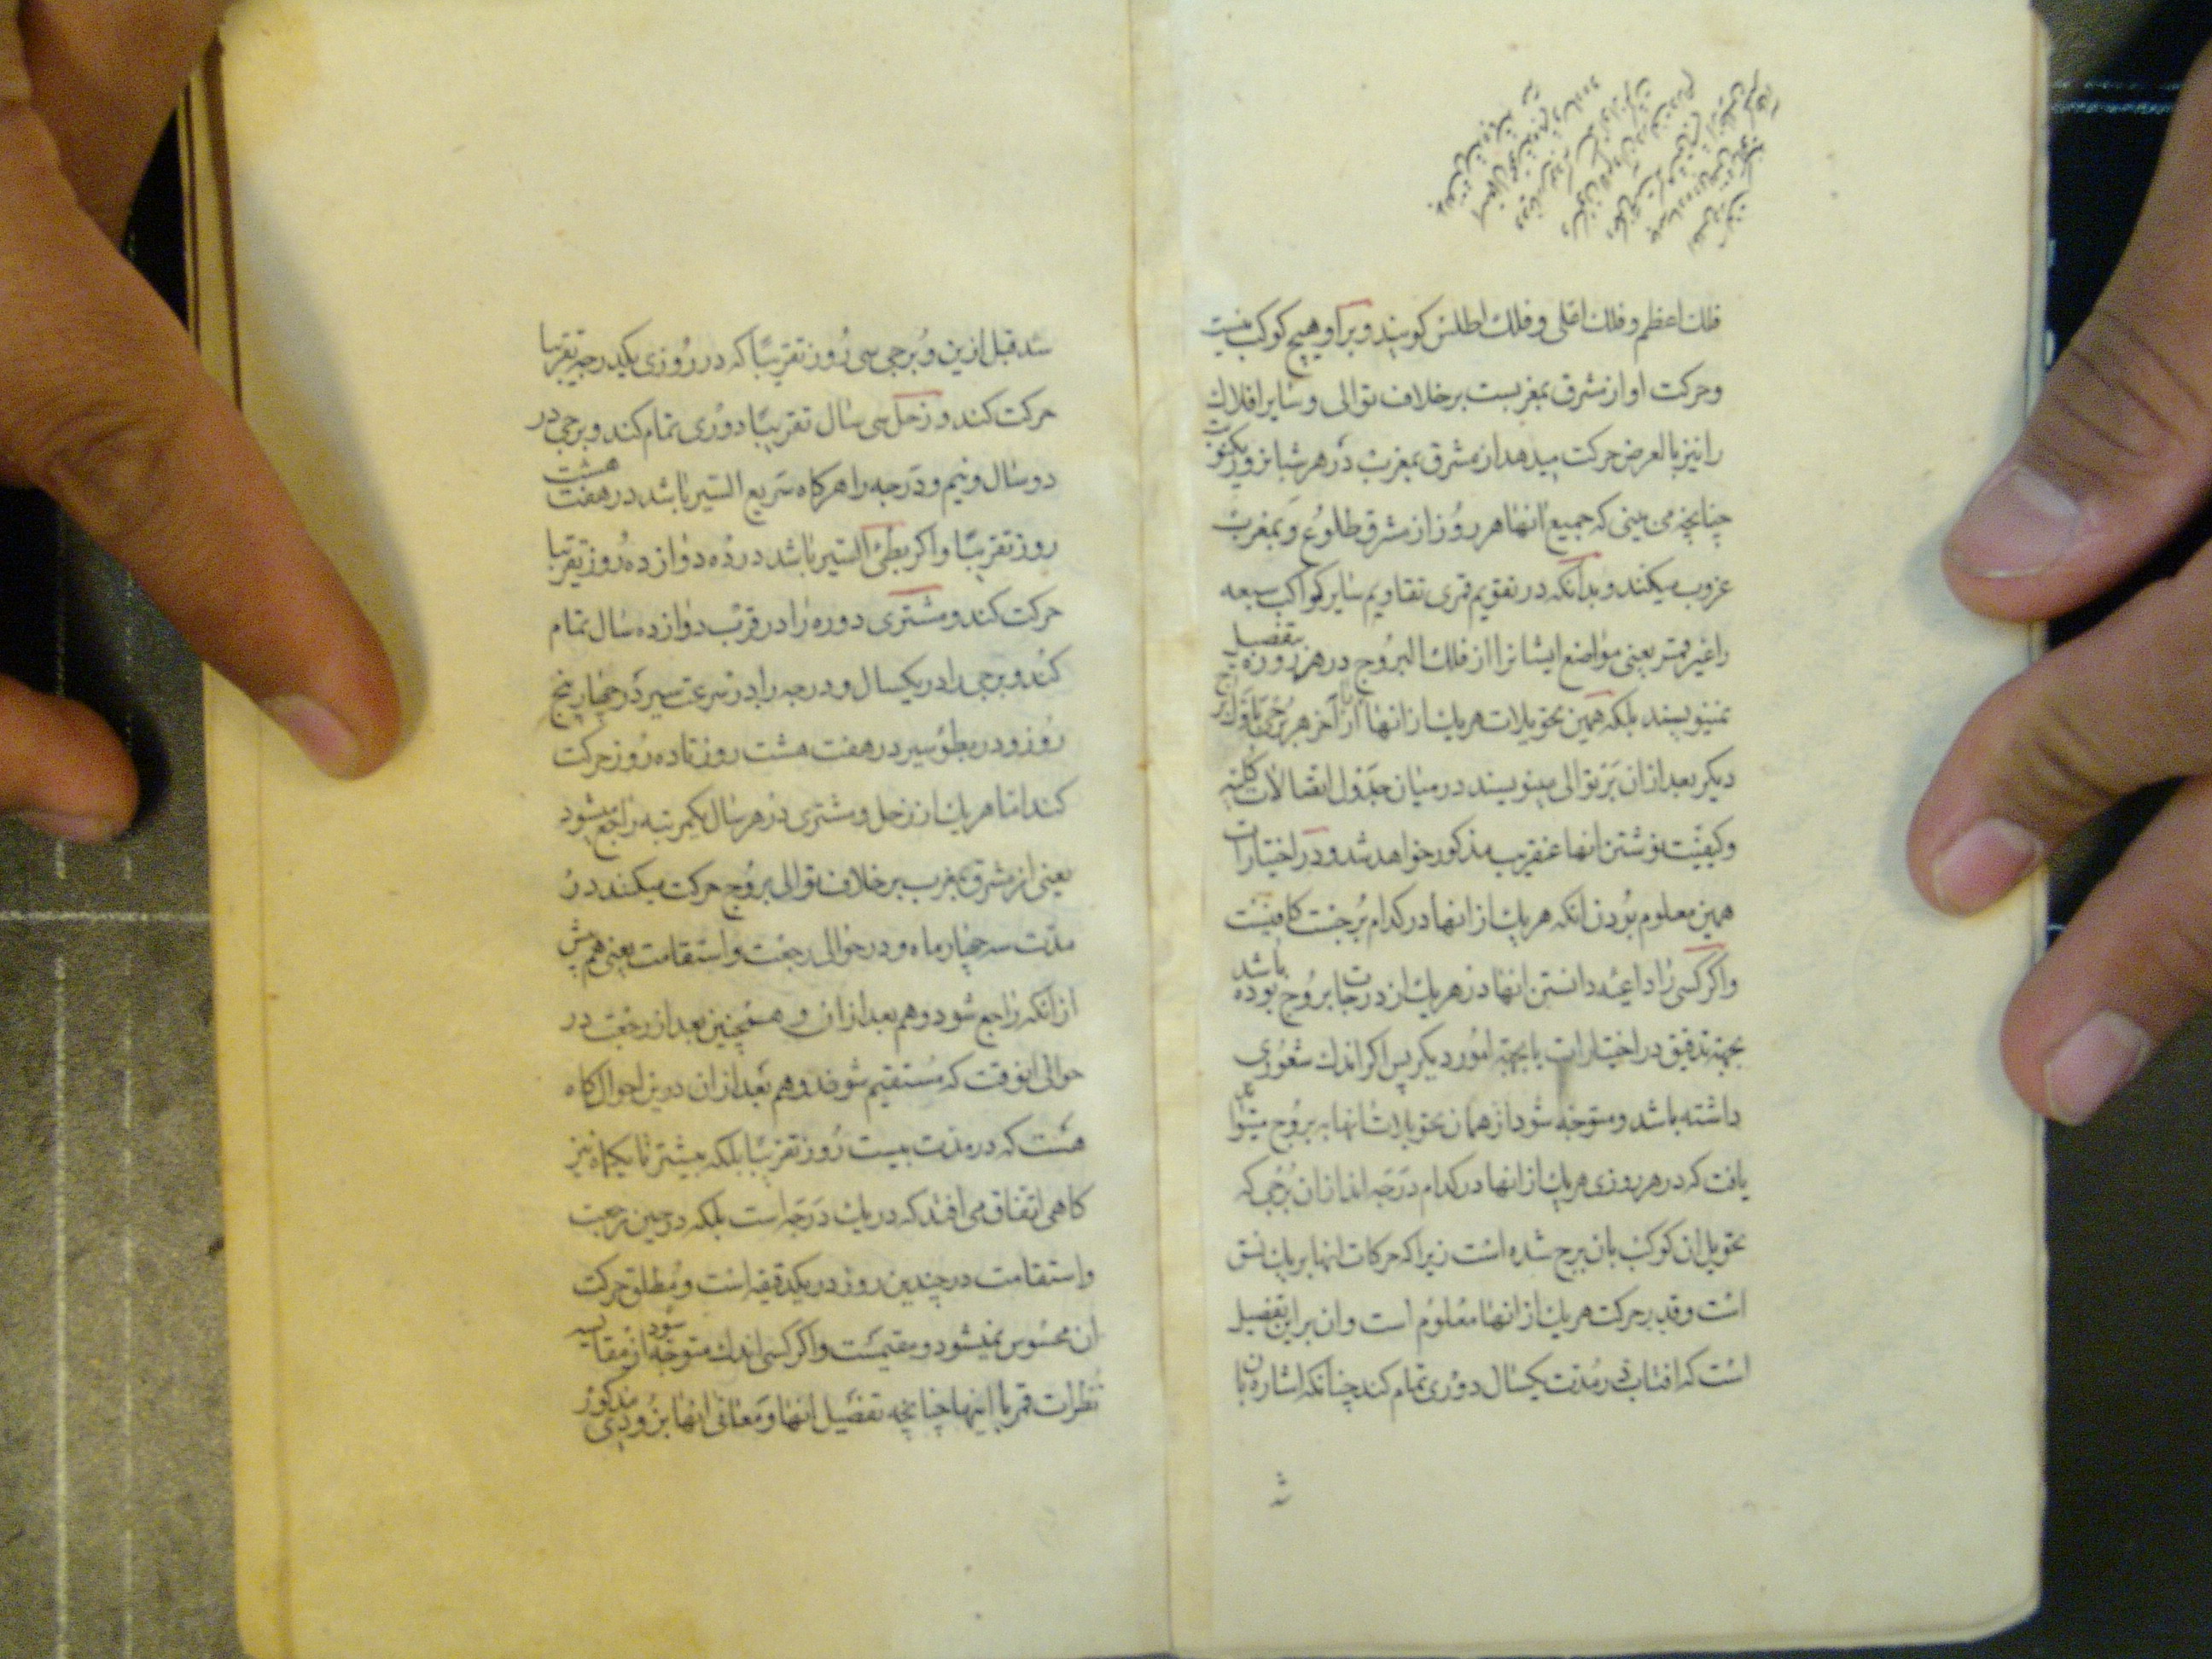 فلك اعظم و فلك اعلی و فلك اطلس كویند و برا و هیچ كوكب نیست
و حركت او از مشرق بمغربست بر خلاف توالی و سایر افلاك
را نیز بالعرض حركت میدهد از مشرق بمغرب در هر شبانروز یكنوبت
چنانچه می بینی كه جمیع انها هر روز از مشرق طلوع و بمغرب
غروب میكنند و بدانكه در تقویم قمری تقاویم سایر كواكب سبعه
را غیر قمر یعنی مواضع ایشانرا از فلك البروج در هر روز بتفصیل
نمینویسند بلكه همین تحویلات هر یك از انها از آخر هر برجی باول برج
دیكر بعد از ان بر توالی مینویسند در میان جدول اتصالات كلیه
و كیفیت نوشتن انها عنقریب مذكور خواهد شد و در اختیارات
همین معلوم بودن انكه هر یك از انها در كدام برجست كافیست
و اكر كسی را داعیه دانستن انها در هر یك از درجات بروج بوده باشد
بجهة تدقیق در اختیارات یا بجهة امور دیكر پس اكر اندك شعوری
داشته باشد و متوجه شود از همان تحویلات انها به بروج میتواند
یافت كه در هر روزی هر یك از انها در كدام درجه اند از ان برجی كه
تحویل ان كوكب بان برج شده است زیرا كه حركات انها بر یك نسق
است و قدر حركت هر یك از انها معلوم است و ان بر این تفصیل
است كه افتاب در مدت یكسال دوری تمام كند چنانكه اشاره بان
شد قبل ازین و برجی سی روز تقریبًا كه در روزی یكدرجه تقریبا
حركت كند و زحل سی سال تقریبًا دوری تمام كند و برجی در
دو سال و نیم و درجه را هر كاه سریع السیر باشد در هفت هشت
روز تقریبًا و اكر بطئ السیر باشد در ده دوازده روز تقریبا
حركت كند و مشتری دوره را در قرب دوازده سال تمام
كند و برجی را در یكسال و درجه را در سرعت سیر در چهار پنج
روز و در بطؤ سیر در هفت هشت روز تا ده روز حركت
كند اما هر یك از زحل و مشتری در هر سال یكمرتبه راجع میشود
یعنی از مشرق بمغرب بر خلاف توالی بروج حركت میكنند در
مدت سه چهار ماه و در حوالی رجعت و استقامت یعنی هم پیش
از انكه راجع شود و هم بعد از ان و همچنین بعد از رجعت در
حوالی انوقت كه مستقیم شوند و هم بعد از ان درین احوال كاه
هست كه در مدت بیست روز تقریبًا بلكه بیشتر تا یكماه نیز
كاهی اتفاق می افتد كه در یك درجه است بلكه در حین رجعت
و استقامت در چندین روز در یكدقیقه است و مطلق حركت
ان محسوس نمیشود و مقیمست و اكر كسی اندك متوجه شود از مقایسه
نظرات قمر با اینها چنانچه تفصیل انها و معانی انها بزودی مذكور
شد